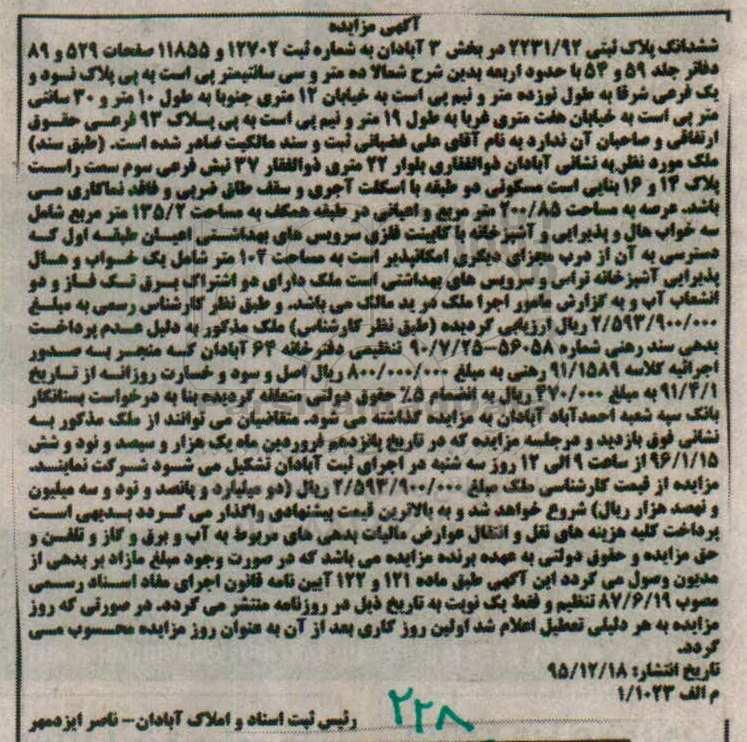 آگهی مزایده
ششدانگ پلاک ثبتی ۲۲۳۱/۹۲ در بخش ۳ آبادان به شماره ثبت ۱۲۷۰۲ و ۱۱۸۵۵ صفحات ۵۲۹ و ۸۹
دفاتر جلد ۵۹ و ۵۴ با حدود اربعه بدین شرح شمالا ده متر و سی سانتیمتر پی است به پی پلاک نود و
یک فرعی شرقا به طول نوزده متر و نیم پی است به خیابان ۱۲ متری جنوبا به طول ۱۰ متر و ۳۰ سانتی
متر پی است به خیابان هفت متری غربا به طول ۱۹ متر و نیم پی است به پی پلاک ۹۳ فرعی حقوق
ارتفاقی و صاحبان آن ندارد به نام آقای علی غضبانی ثبت و سند مالکیت صادر شده است. (طبق سند)
ملک مورد نظر به نشانی آبادان ذوالفقاری بلوار ۲۲ متری ذوالفقار ۳۷ نبش فرعی سوم سمت راست
پلاک ۱۴ و ۱۶ بنایی است مسکونی دو طبقه با اسکلت آجری و سقف طاق ضربی و فاقد نماکاری می
باشد. عرصه به مساحت ۲۰۰/۸۵ متر مربع و اعیانی در طبقه همکف به مساحت ۱۳۵/۲ متر مربع شامل
سه خواب هال و پذیرایی و آشپزخانه با کابینت فلزی سرویس های بهداشتی اعیان طبقه اول که
دسترسی به آن از درب مجزای دیگری امکانپذیر است به مساحت ۱۰۲ متر شامل یک خواب و هال
پذیرایی آشپزخانه تراس و سرویس های بهداشتی است ملک دارای دو اشتراک برق تک فاز و دو
انشعاب آب و به گزارش مامور اجرا ملک در ید مالک می باشد. و طبق نظر کارشناس رسمی به مبلغ
۲/۵۹۳/۹۰۰/۰۰۰ ریال ارزیابی گردیده (طبق نظر کارشناس) ملک مذکور به دلیل عدم پرداخت
بدهی سند رهنی شماره ۵۶۰۵۸-۹۰/۷/۲۵ تنظیمی دفترخانه ۶۴ آبادان که منجر به صدور
اجرائیه کلاسه ۹۱/۱۵۸۹ رهنی به مبلغ ۸۰۰/۰۰۰/۰۰۰ ریال اصل و سود و خسارت روزانه از تاریخ
۹۱/۴/۱ به مبلغ ۳۷۰/۰۰۰ ریال به انضمام ۵٪ حقوق دولتی متعلقه گردیده بنا به درخواست بستانکار
بانک سپه شعبه احمدآباد آبادان به مزایده گذاشته می شود. متقاضیان می توانند از ملک مذکور به
نشانی فوق بازدید و درجلسه مزایده که در تاریخ پانزدهم فروردین ماه یک هزار و سیصد و نود و شش
۹۶/۱/۱۵ از ساعت ۹ الی ۱۲ روز سه شنبه در اجرای ثبت آبادان تشکیل می شود شرکت نمایند.
مزایده از قیمت کارشناسی ملک مبلغ ۲/۵۹۳/۹۰۰/۰۰۰ ریال (دو میلیارد و پانصد و نود و سه میلیون
و نهصد هزار ریال) شروع خواهد شد و به بالاترین قیمت پیشنهادی واگذار می گردد بدیهی است
پرداخت کلیه هزینه های نقل و انتقال عوارض مالیات بدهی های مربوط به آب و برق و گاز و تلفن و
حق مزایده و حقوق دولتی به عهده برنده مزایده می باشد که در صورت وجود مبلغ مازاد بر بدهی از
مدیون وصول می گردد این آگهی طبق ماده ۱۲۱ و ۱۲۲ آیین نامه قانون اجرای مفاد اسناد رسمی
مصوب ۸۷/۶/۱۹ تنظیم و فقط یک نوبت به تاریخ ذیل در روزنامه منتشر می گردد. در صورتی که روز
مزایده به هر دلیلی تعطیل اعلام شد اولین روز کاری بعد از آن به عنوان روز مزایده محسوب می
گردد.
تاریخ انتشار: ۹۵/۱۲/۱۸
م الف ۱/۱۰۲۳
رئیس ثبت اسناد و املاک آبادان- ناصر ایزدمهر
۲۲۸